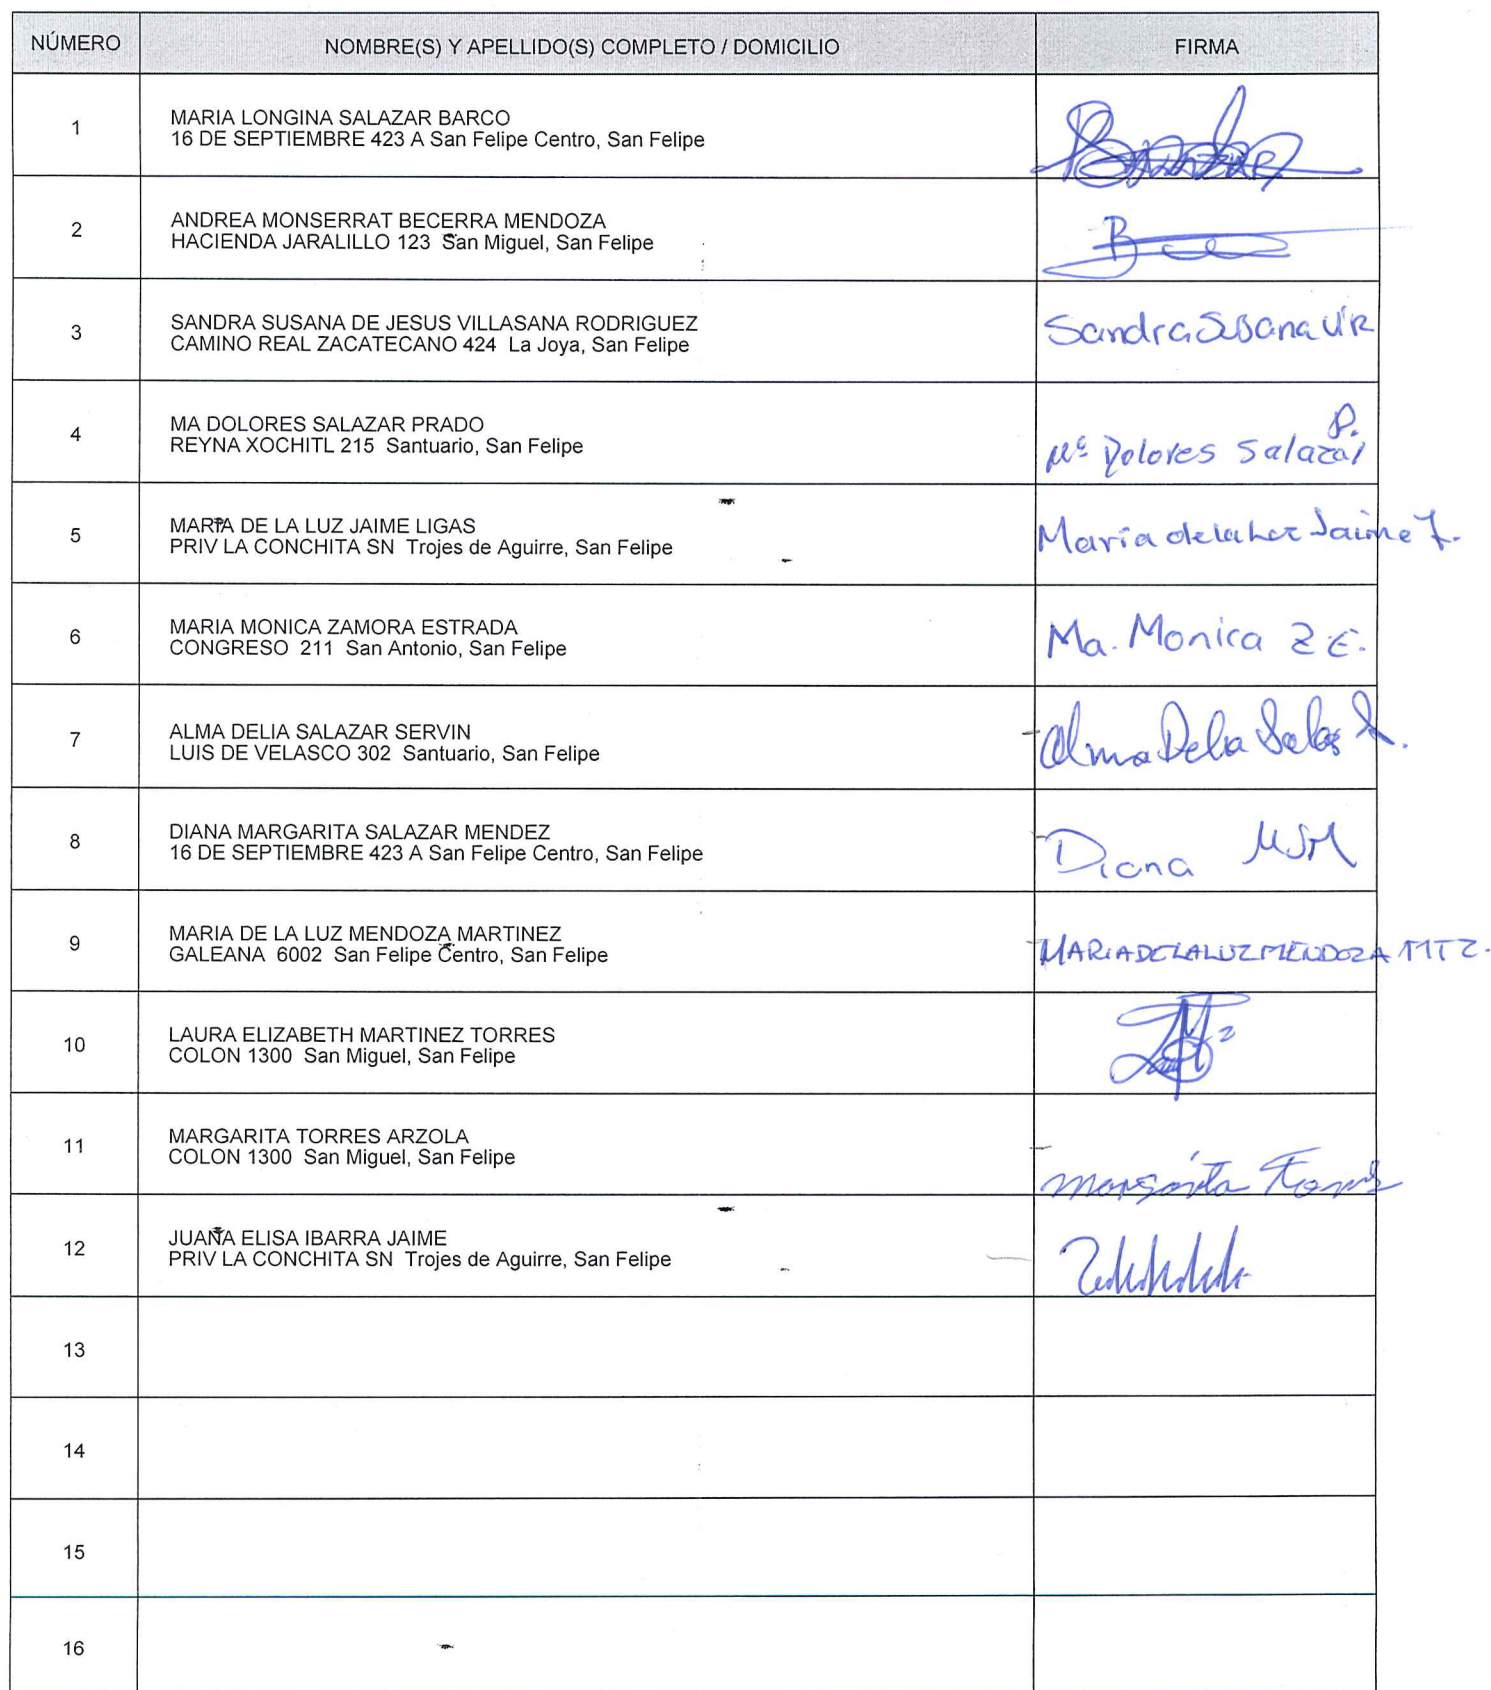 NÚMERO NOMBRE(S) Y APELLIDO(S) COMPLETO / DOMICILIO FIRMA
1 MARIA LONGINA SALAZAR BARCO
16 DE SEPTIEMBRE 423 A San Felipe Centro, San Felipe
2 ANDREA MONSERRAT BECERRA MENDOZA
HACIENDA JARALILLO 123 San Miguel, San Felipe
3 SANDRA SUSANA DE JESUS VILLASANA RODRIGUEZ
CAMINO REAL ZACATECANO 424 La Joya, San Felipe
Sandra Susana V R
4 MA DOLORES SALAZAR PRADO
REYNA XOCHITL 215 Santuario, San Felipe
P.
Mª Dolores Salazar
5 MARIA DE LA LUZ JAIME LIGAS
PRIV LA CONCHITA SN Trojes de Aguirre, San Felipe
Maria de la Luz Jaime L.
6 MARIA MONICA ZAMORA ESTRADA
CONGRESO 211 San Antonio, San Felipe
Ma. Monica Z E.
7 ALMA DELIA SALAZAR SERVIN
LUIS DE VELASCO 302 Santuario, San Felipe
Alma Delia
8 DIANA MARGARITA SALAZAR MENDEZ
16 DE SEPTIEMBRE 423 A San Felipe Centro, San Felipe
Diana MSM
9 MARIA DE LA LUZ MENDOZA MARTINEZ
GALEANA 6002 San Felipe Centro, San Felipe
MARIA DE LA LUZ MENDOZA MTZ.
10 LAURA ELIZABETH MARTINEZ TORRES
COLON 1300 San Miguel, San Felipe
11 MARGARITA TORRES ARZOLA
COLON 1300 San Miguel, San Felipe
margarita Torres
12 JUANA ELISA IBARRA JAIME
PRIV LA CONCHITA SN Trojes de Aguirre, San Felipe
13
14
15
16